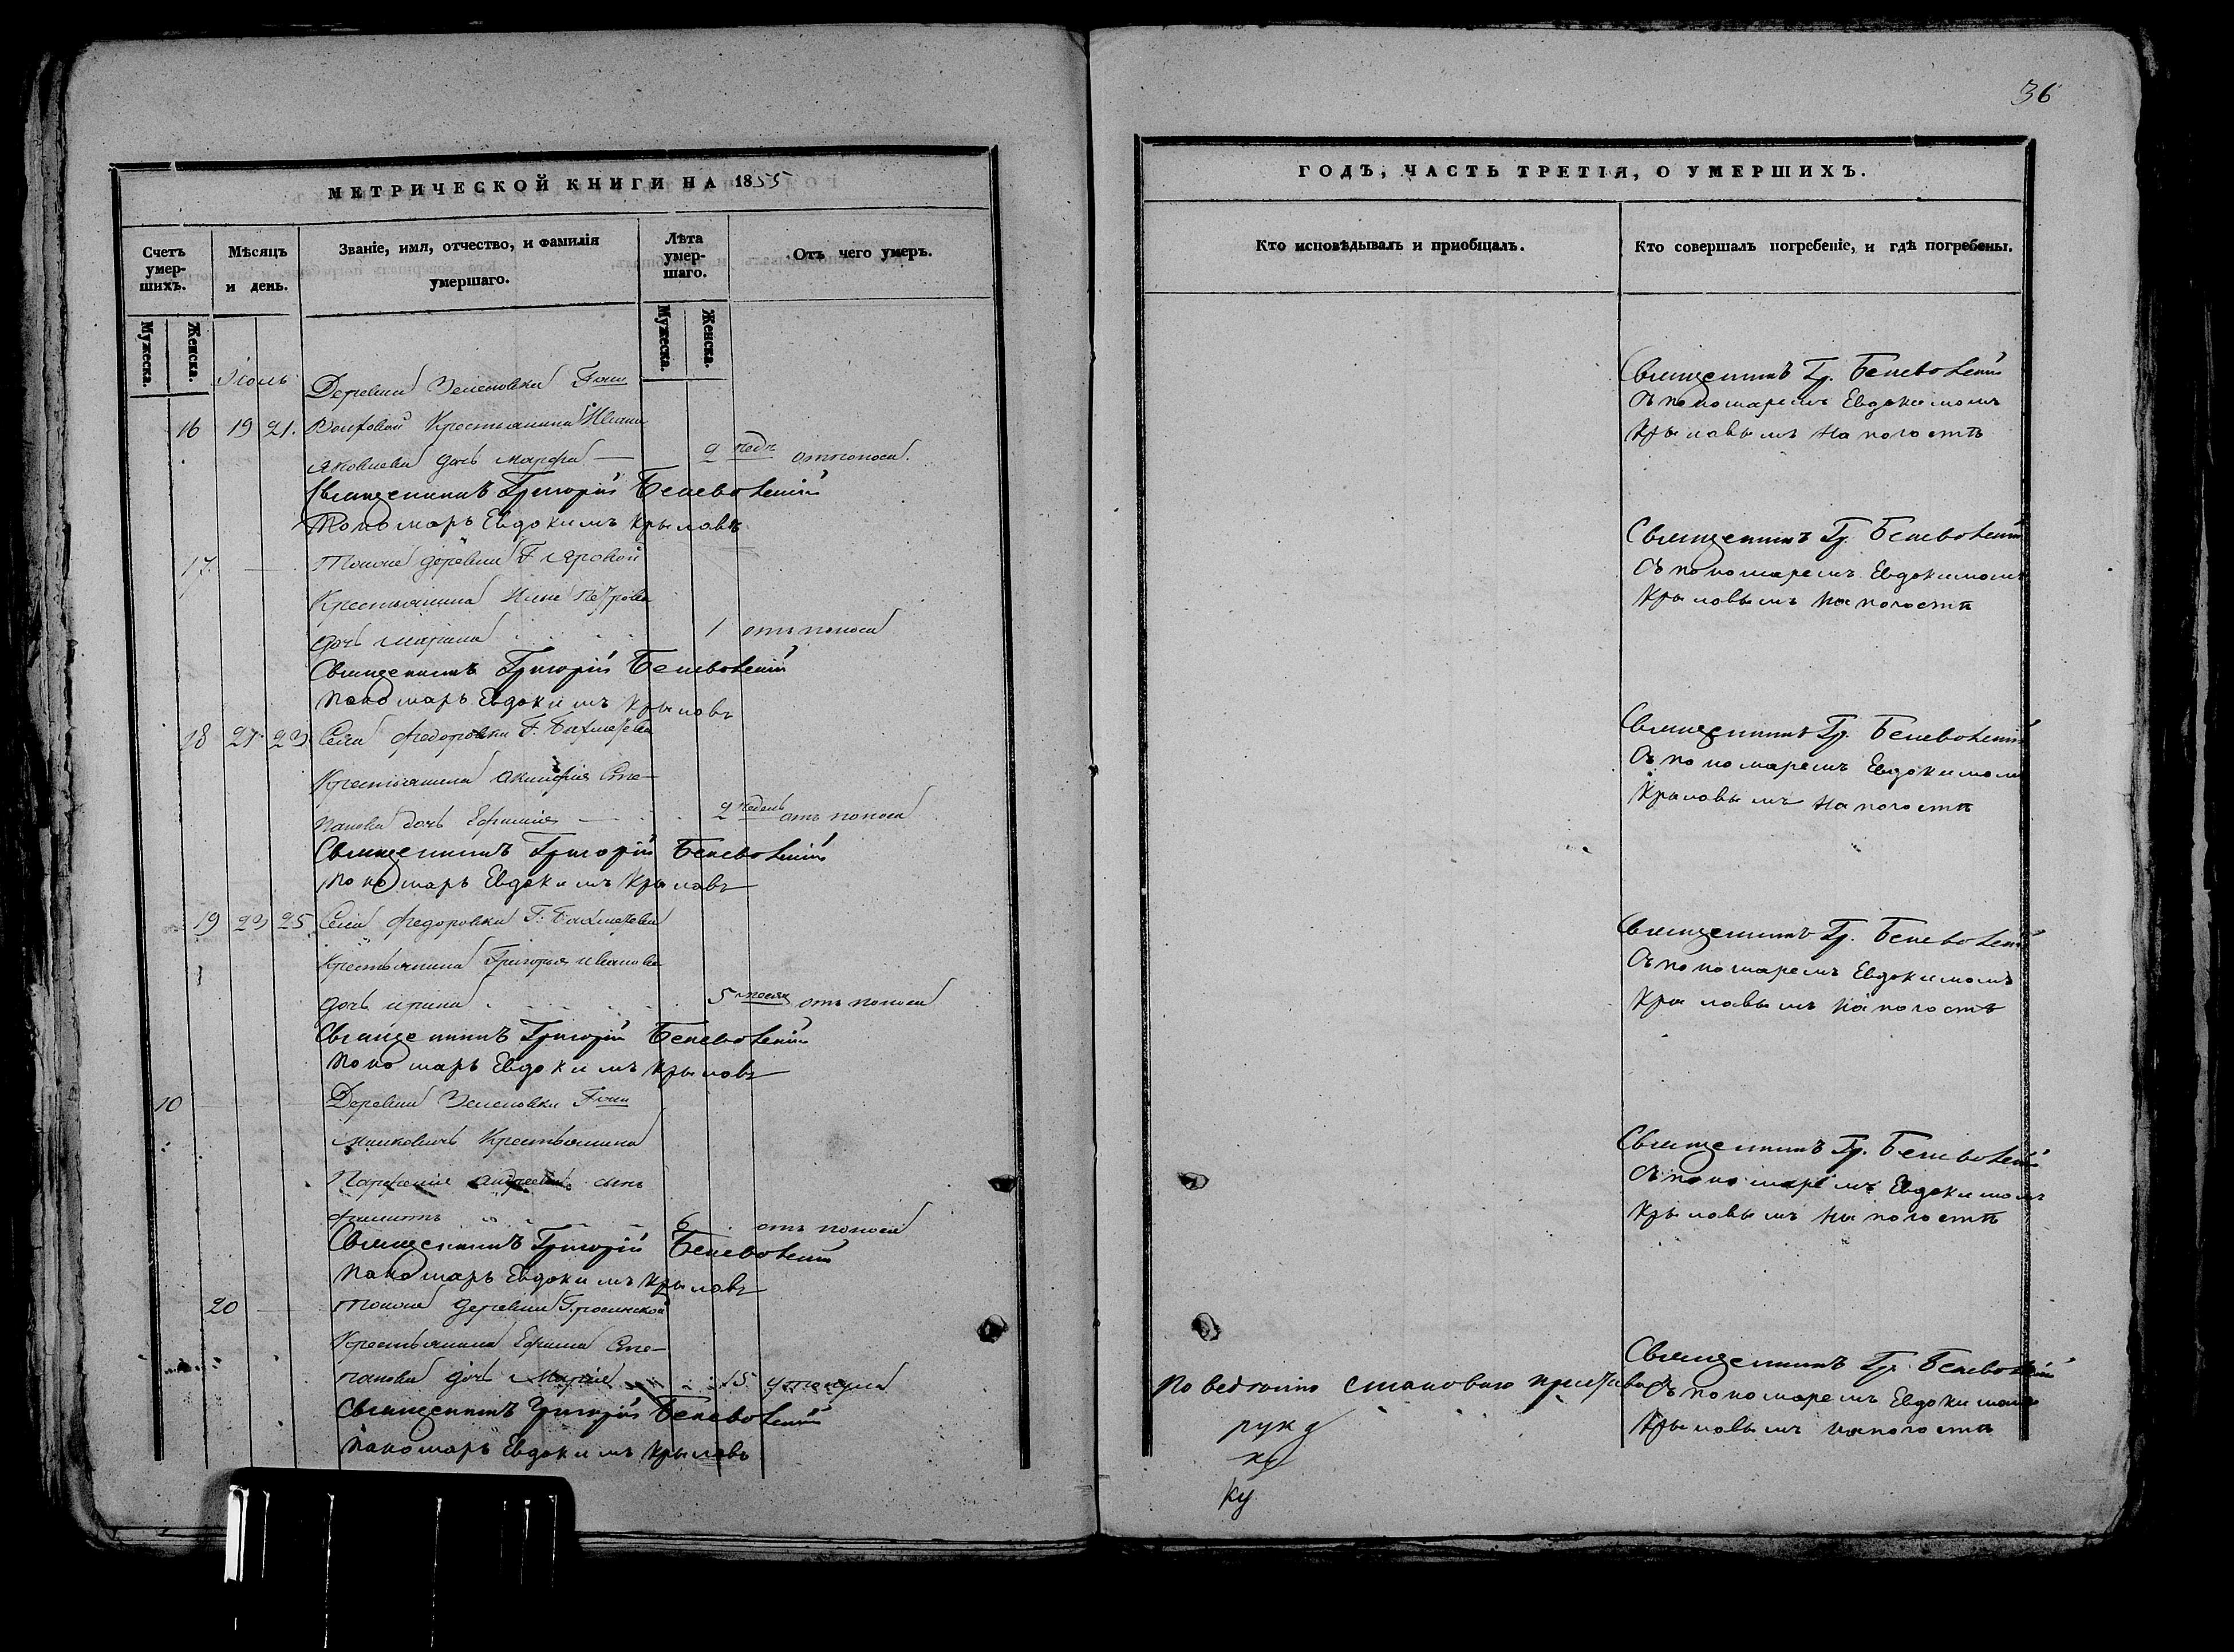 36
МЕТРИЧЕСКОЙ КНИГИ НА 1855
Счетъ умер-шихъ.
Мѣсяцъ и день.
Званіе, имя, отчество, и фамилія умершаго.
Лѣта умер-шаго.
Отъ чего умеръ.
Мужеска. Женска.
Мужеска. Женска.
Іюль
Деревни Зеленовки Гжи
16 19 21. Крестьянина Ивана
Яковлева дочь Марфа 2 недѣ отъ поноса.
Священникъ Григорій Беневоленскій
Пономарь Евдокимъ Крыловъ
17. Тояже деревни Г.
Крестьянина Петрова
дочь 1 отъ поноса
Священникъ Григорій Беневоленскій
Пономарь Евдокимъ Крыловъ
18 21 23 Села Федоровки Г. Бахметева
Крестьянина Акинфія Сте-
панова дочь Ефимія 2 недель отъ поноса
Священникъ Григорій Беневоленскій
Пономарь Евдокимъ Крыловъ
19 23 25 Села Федоровки Г. Бахметева
Крестьянина Григорья Иванова
дочь Ирина 5 месяц отъ поноса
Священникъ Григорій Беневоленскій
Пономарь Евдокимъ Крыловъ
10 Деревни Зеленовки Гжи
Крестьянина
Парфенія Андреева сынъ
6 отъ поноса
Священникъ Григорій Беневоленскій
Пономарь Евдокимъ Крыловъ
20 Тояже деревни
Крестьянина Ефима Сте-
панова дочь Марія 15 утонула
Священникъ Григорій Беневоленскій
Пономарь Евдокимъ Крыловъ
ГОДЪ, ЧАСТЬ ТРЕТІЯ, О УМЕРШИХЪ.
Кто исповѣдывалъ и пріобщалъ.
Кто совершалъ погребеніе, и гдѣ погребены.
Священникъ Гр. Беневоленскій
Съ пономаремъ Евдокимомъ
Крыловымъ на погостѣ
Священникъ Гр. Беневоленскій
Съ пономаремъ Евдокимомъ
Крыловымъ на погостѣ
Священникъ Гр. Беневоленскій
Съ пономаремъ Евдокимомъ
Крыловымъ на погостѣ
Священникъ Гр. Беневоленскій
Съ пономаремъ Евдокимомъ
Крыловымъ на погостѣ
Священникъ Гр. Беневоленскій
Съ пономаремъ Евдокимомъ
Крыловымъ на погостѣ
Священникъ Гр. Беневоленскій
По ведтнию становаго пристава
Съ пономаремъ Евдокимомъ
Крыловымъ на погостѣ
рук
ку